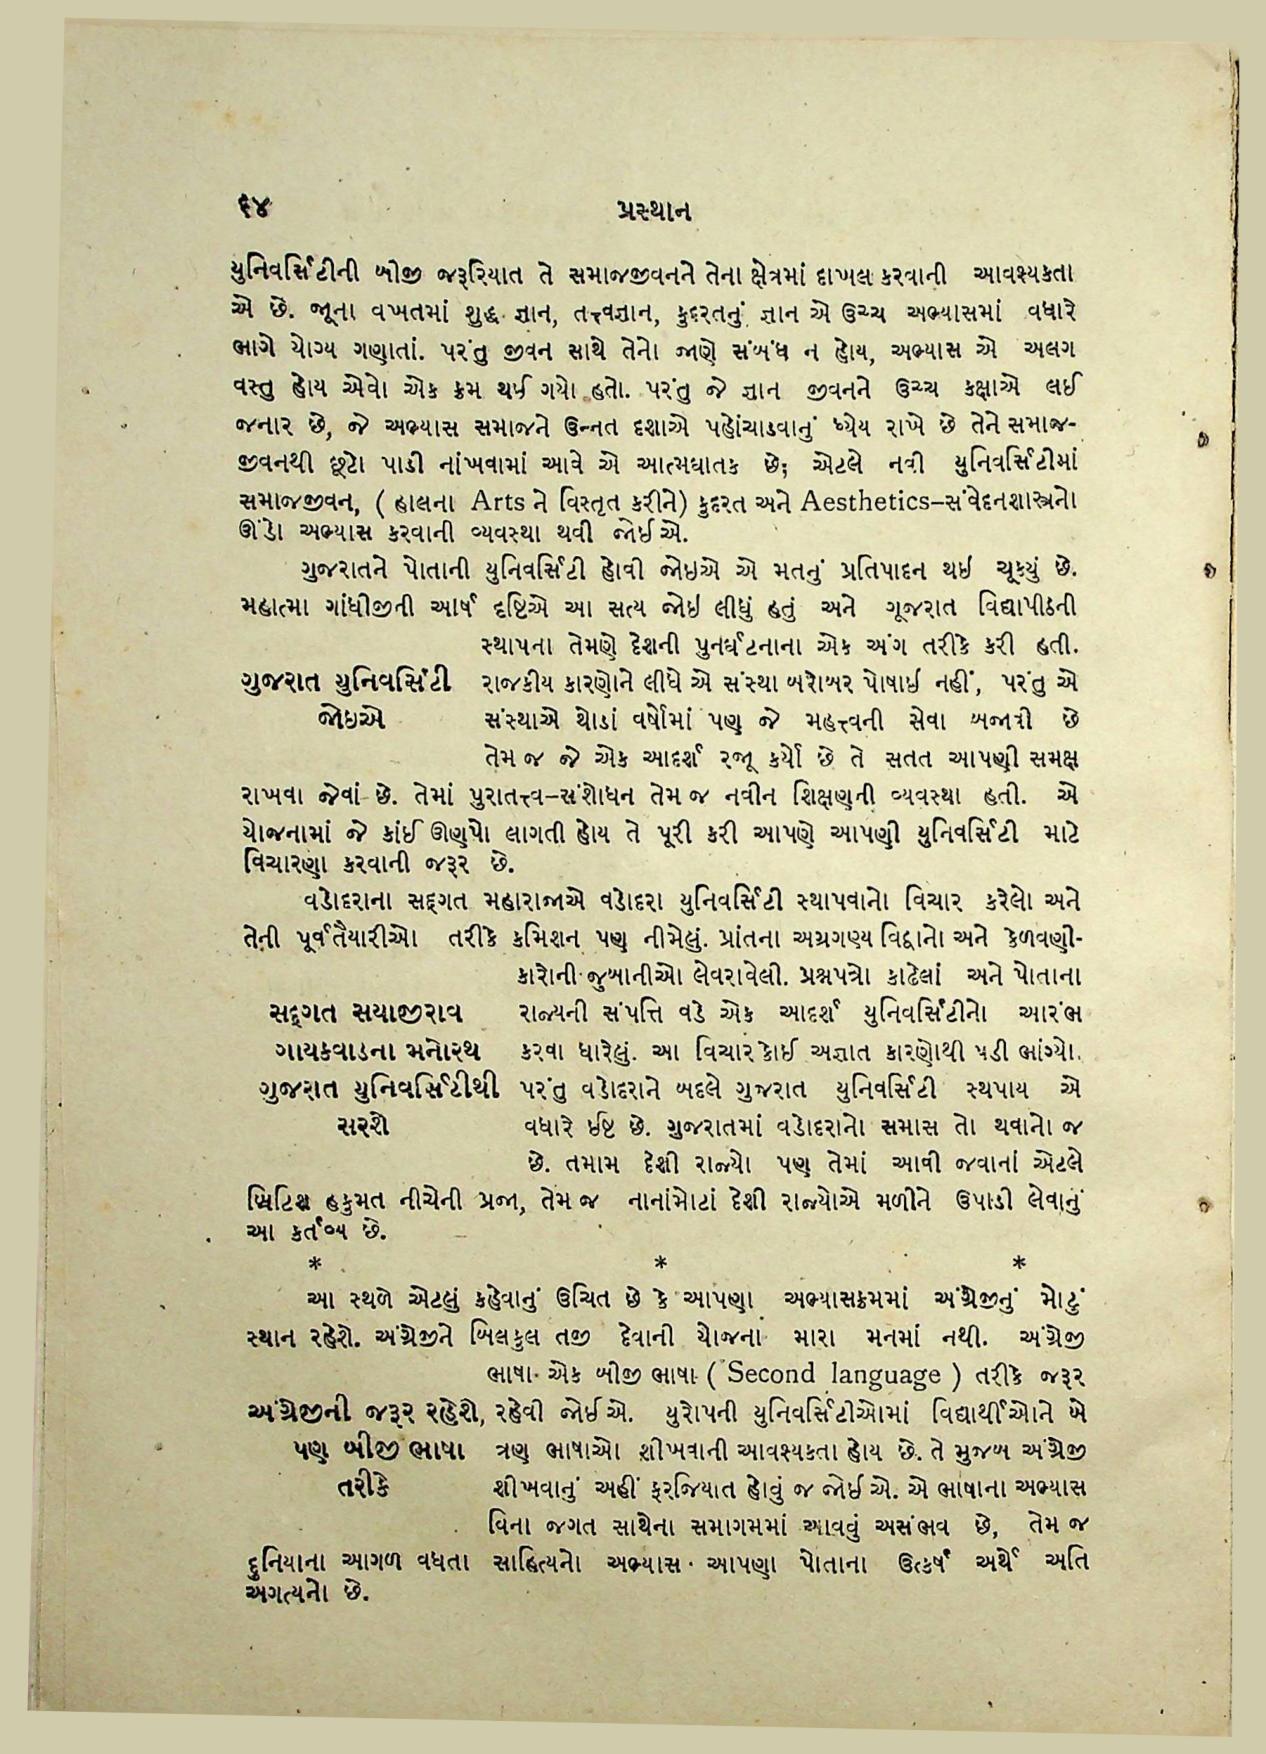 ૬૪ પ્રસ્થાન
યુનિવર્સિટીની બીજી જરૂરિયાત તે સમાજજીવનને તેના ક્ષેત્રમાં દાખલ કરવાની આવશ્યકતા
એ છે. જૂના વખતમાં શુદ્ધ જ્ઞાન, તત્ત્વજ્ઞાન, કુદરતનું જ્ઞાન એ ઉચ્ચ અભ્યાસમાં વધારે
ભાગે યોગ્ય ગણાતાં. પરંતુ જીવન સાથે તેનો જાણે સંબંધ ન હોય, અભ્યાસ એ અલગ
વસ્તુ હોય એવો એક ક્રમ થઈ ગયો હતો. પરંતુ જે જ્ઞાન જીવનને ઉચ્ચ કક્ષાએ લઈ
જનાર છે, જે અભ્યાસ સમાજને ઉન્નત દશાએ પહોંચાડવાનું ધ્યેય રાખે છે તેને સમાજ-
જીવનથી છૂટો પાડી નાંખવામાં આવે એ આત્મઘાતક છે; એટલે નવી યુનિવર્સિટીમાં
સમાજજીવન, ( હાલના Arts ને વિસ્તૃત કરીને) કુદરત અને Aesthetics–સંવેદનશાસ્ત્રનો
ઊંડો અભ્યાસ કરવાની વ્યવસ્થા થવી જોઈએ.
ગુજરાતને પોતાની યુનિવર્સિટી હોવી જોઇએ એ મતનું પ્રતિપાદન થઇ ચૂક્યું છે.
મહાત્મા ગાંધીજીની આર્ષ દૃષ્ટિએ આ સત્ય જોઇ લીધું હતું અને ગૂજરાત વિદ્યાપીઠની
સ્થાપના તેમણે દેશની પુનર્ઘટનાના એક અંગ તરીકે કરી હતી.
ગુજરાત યુનિવર્સિટી રાજકીય કારણોને લીધે એ સંસ્થા બરોબર પોષાઇ નહીં, પરંતુ એ
જોઇએ સંસ્થાએ થોડાં વર્ષોમાં પણ જે મહત્ત્વની સેવા બજાવી છે
તેમ જ જે એક આદર્શ રજૂ કર્યો છે તે સતત આપણી સમક્ષ
રાખવા જેવાં છે. તેમાં પુરાતત્ત્વ–સંશોધન તેમ જ નવીન શિક્ષણની વ્યવસ્થા હતી. એ
યોજનામાં જે કાંઈ ઊણપો લાગતી હોય તે પૂરી કરી આપણે આપણી યુનિવર્સિટી માટે
વિચારણા કરવાની જરૂર છે.
વડોદરાના સદ્દગત મહારાજાએ વડોદરા યુનિવર્સિટી સ્થાપવાનો વિચાર કરેલો અને
તેની પૂર્વતૈયારીઓ તરીકે કમિશન પણ નીમેલું. પ્રાંતના અગ્રગણ્ય વિદ્વાનો અને કેળવણી-
કારોની જુબાનીઓ લેવરાવેલી. પ્રશ્નપત્રો કાઢેલાં અને પોતાના
સદ્દગત સયાજીરાવ રાજ્યની સંપત્તિ વડે એક આદર્શ યુનિવર્સિટીનો આરંભ
ગાયકવાડના મનોરથ કરવા ધારેલું. આ વિચાર કોઈ અજ્ઞાત કારણોથી પડી ભાંગ્યો.
ગુજરાત યુનિવર્સિટીથી પરંતુ વડોદરાને બદલે ગુજરાત યુનિવર્સિટી સ્થપાય એ
સરશે વધારે ઈષ્ટ છે. ગુજરાતમાં વડોદરાનો સમાસ તો થવાનો જ
છે. તમામ દેશી રાજ્યો પણ તેમાં આવી જવાનાં એટલે
બ્રિટિશ હકુમત નીચેની પ્રજા, તેમ જ નાનાંમોટાં દેશી રાજ્યોએ મળીને ઉપાડી લેવાનું
આ કર્તવ્ય છે.
* * *
આ સ્થળે એટલું કહેવાનું ઉચિત છે કે આપણા અભ્યાસક્રમમાં અંગ્રેજીનું મોટું
સ્થાન રહેશે. અંગ્રેજીને બિલકુલ તજી દેવાની યોજના મારા મનમાં નથી. અંગ્રેજી
ભાષા એક બીજી ભાષા ( Second language ) તરીકે જરૂર
અંગ્રેજીની જરૂર રહેશે, રહેવી જોઈએ. યુરોપની યુનિવર્સિટીઓમાં વિદ્યાર્થીઓને બે
પણ બીજી ભાષા ત્રણ ભાષાઓ શીખવાની આવશ્યકતા હોય છે. તે મુજબ અંગ્રેજી
તરીકે શીખવાનું અહીં ફરજિયાત હોવું જ જોઈએ. એ ભાષાના અભ્યાસ
વિના જગત સાથેના સમાગમમાં આવવું અસંભવ છે, તેમ જ
દુનિયાના આગળ વધતા સાહિત્યનો અભ્યાસ આપણા પોતાના ઉત્કર્ષ અર્થે અતિ
અગત્યનો છે.